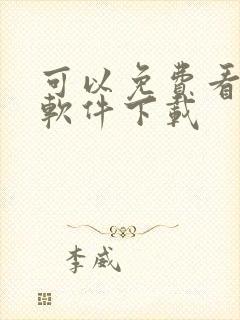 可以免费看
軟件下載
李威